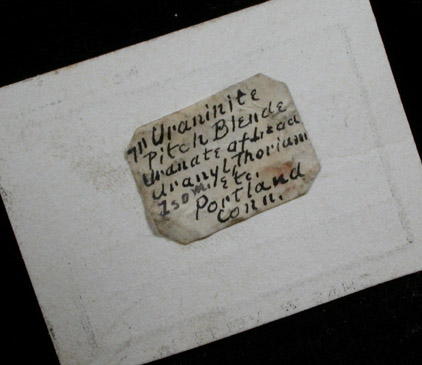 711 Uraninite
Pitch Blende
Uranate of Lead
Uranyl, Thorium
Isom. Etc.
Portland
Conn.